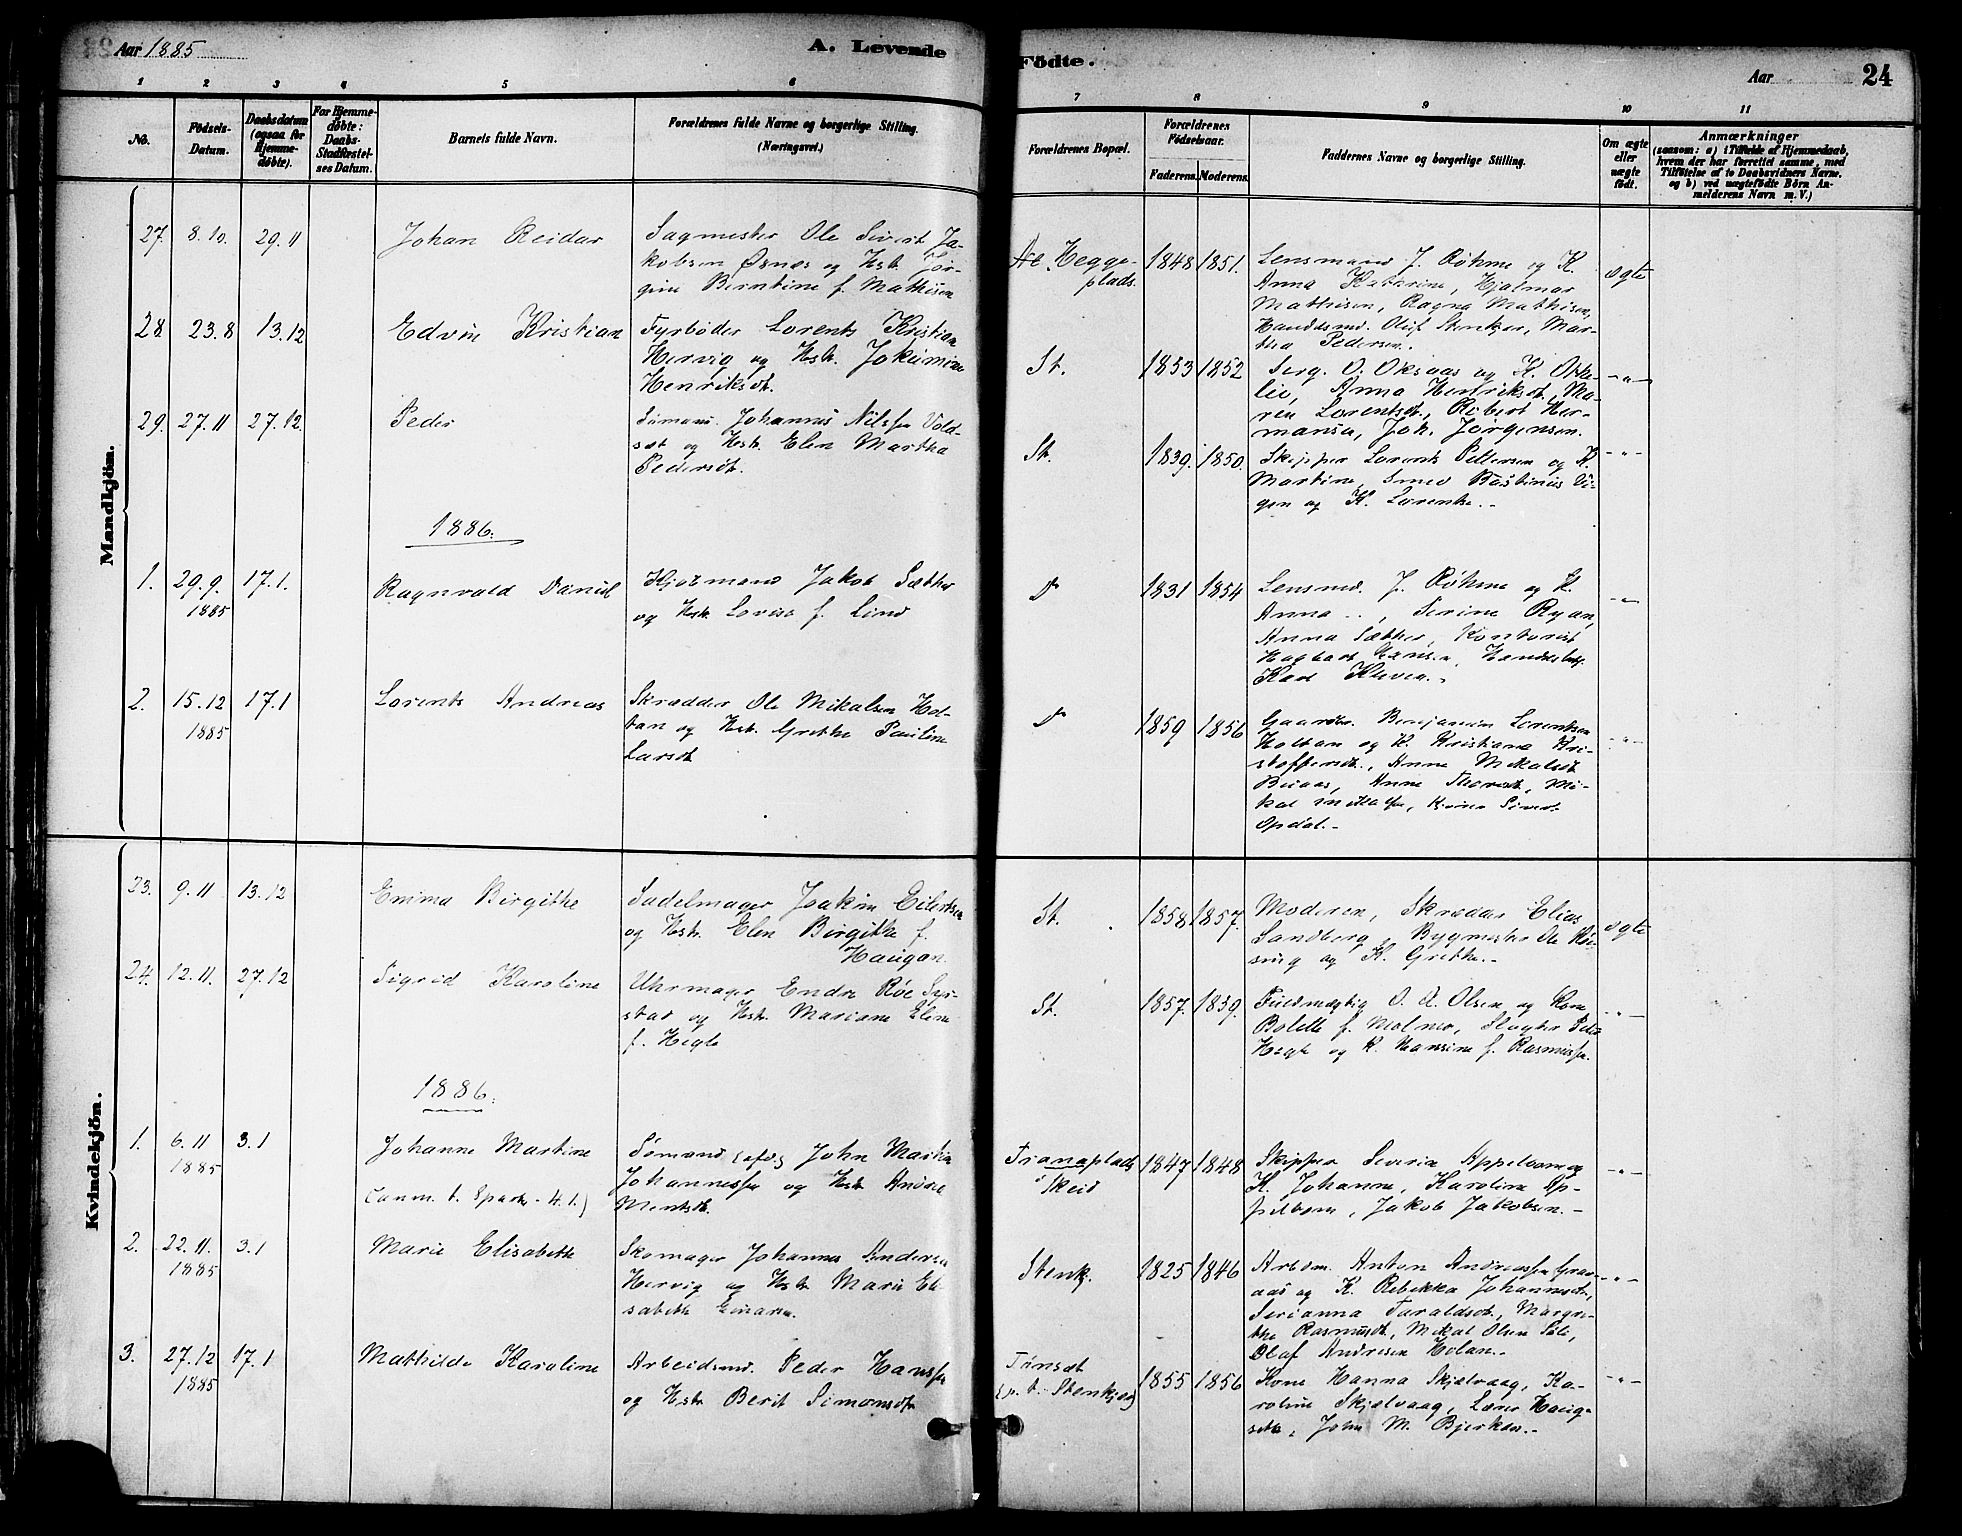 Aar 1885
A. Levende
Födte.
Aar
24
1 2 3 4 5 6 7 8 9 10 11
No.
Födsels-
Datum.
Daabsdatum
(ogsaa for
Hjemme-
døbte).
For Hjemme-
døbte:
Daabs-
Stadfæstel-
ses Datum.
Barnets fulde Navn.
Forældrenes fulde Navne og borgerlige Stilling.
(Næringsvei.)
Forældrenes Bopæl.
Forældrenes
Födselsaar.
Faderens. Moderens.
Faddernes Navne og borgerlige Stilling.
Om ægte
eller
uægte
födt.
Anmærkninger
(saasom: a) i Tilfælde af Hjemmedaab,
hvem der har forrettet samme, med
Tilföielse af to Daabsvidners Navne.
og b) ved uægtefödte Börn An-
melderens Navn m. V.)
Mandkjön.
27. 8.10. 29.11 Johan Reidar
Sagmester Ole Sivert Ja-
kobsen Øsnes og Hstr. Jør-
gine Berntine f. Mathisen
Hegge-
plads.
1848 1851.
Lensmand J. Røhme og K.
Anna Kathrine, Hjalmar
Mathisen, Ragna Mathisen,
Handelsmd. Oluf Stenkjer, Mar-
tha Pedersen.
ægte
28. 23.8 13.12 Edvin Kristian
Fyrbøder Lorents Kristian
Hervig og Hstr. Jokumine
Henriksdt.
St. 1853 1852
Serg. O. Oksaas og K. Otte-
lie, Anna Henriksdt., Ma-
ren Lorentsdt., Robert Her-
mansen, Joh. Jørgensen.
-"-
29. 27.11 27.12. Peder
Sømand Johannes Nilssen Vold-
set og Hstr. Elen Martha
Pedersdt.
St. 1839. 1850.
Skipper Lorents Pettersen og K.
Martine, Smed Bastinus Vi-
gen og K. Lorentse.-
-"-
1886.
1. 29.9. 17.1. Ragnvald Daniel
1885
Kjørmand Jakob Sæther
og Hstr. Lovise f. Lind
1831 1854
Lensmd. J. Røhme og K.
Anna .., Serine Ryan,
Anna Sæther, Kontorist
Hagbart Hansen, Handelsbetj.
Karl Kleven.-
-"-
2. 15.12 17.1 Lorents Andreas
1885
Skrædder Ole Mikalsen Hol-
tan og Hstr. Grethe Pauline
Larsdt
1859 1856
Gaardbr. Benjamin Lorentsen
Holtan og K. Kristiana Kri-
stoffersdt., Anne Mikalsdt
Buaas, Anne Thoresdt, Mi-
kal
Opdal.-
-"-
Kvindekjön.
23. 9.11 13.12 Emma Birgithe
Sadelmager Joakim Eilertsen
og Hstr. Elen Birgithe f.
Haugan.
St. 1858 1857.
Moderen, Skrædder Elias
Sandberg, Bygmester Ole Røi-
sing og K. Grethe.-
ægte
24. 12.11. 27.12 Sigrid Karoline
Uhrmager Endre Røe Syr-
stad og Hstr. Mariane Eline
f. Hegle
St. 1857. 1859.
Fuldmægtig O. A. Olsen og Kone
Bolette f. Molmer, Slagter Peder
Hegle og K. Hansine f. Rasmussen.
-"-
1886.
1. 6.11 3.1 Johanne Martine
1885
(anm. t. Sparbo 4.1.)
Sømand John Martin
Johannessen og Hstr. Andrea
Mentsdt.
Tranaplads
Skeid
1847 1848
Skipper Severin Appelvom og
K. Johanne, Karoline Ap-
pelvom, Jakob Jakobsen.-
-"-
2. 22.11. 3.1 Marie Elisabeth
1885
Skomager Johannes Andersen
Hervig og Hstr. Marie Eli-
sabeth Einarsen.
Stenkj. 1825 1846
Arbdsm. Anton Andreassen Grav-
aas og K. Rebekka Johannesdt.,
Serianna Taraldsdt., Margre-
the Rasmusdt., Mikal Olsen Føli,
Olaf Andresen Holan.-
-"-
3. 27.12 17.1 Mathilde Karoline
1885
Arbeidsmd. Peder Hanssen
og Hstr Berit Simonsdt.
Tønset
Stenkjer
1855 1856
Kone Hanna Skjelvaag, Ka-
roline Skjelvaag, Lærer Haug-
seth, John M. Bjerken.-
-"-